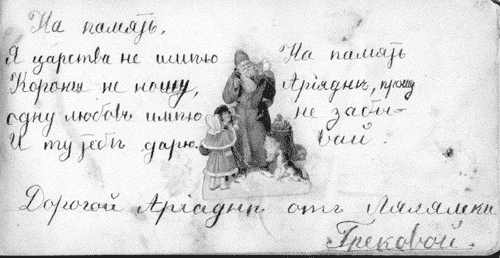 На память.
Я царства не имѣю
Короны не ношу,
одну любовь имѣю
И ту тебѣ дарю.
На память
Аріаднѣ, прошу
не забы-
вай.
Дорогой Аріаднѣ отъ
Грековой.